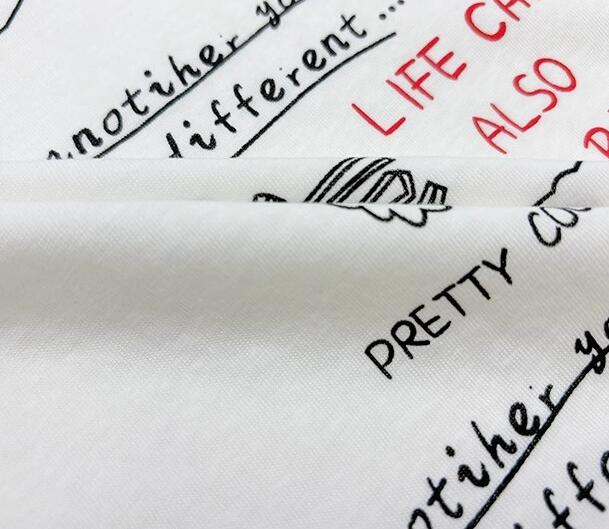 anotiher yo
different...
LIFE CA
ALSO
PRETTY CO
otiher yo
iffe